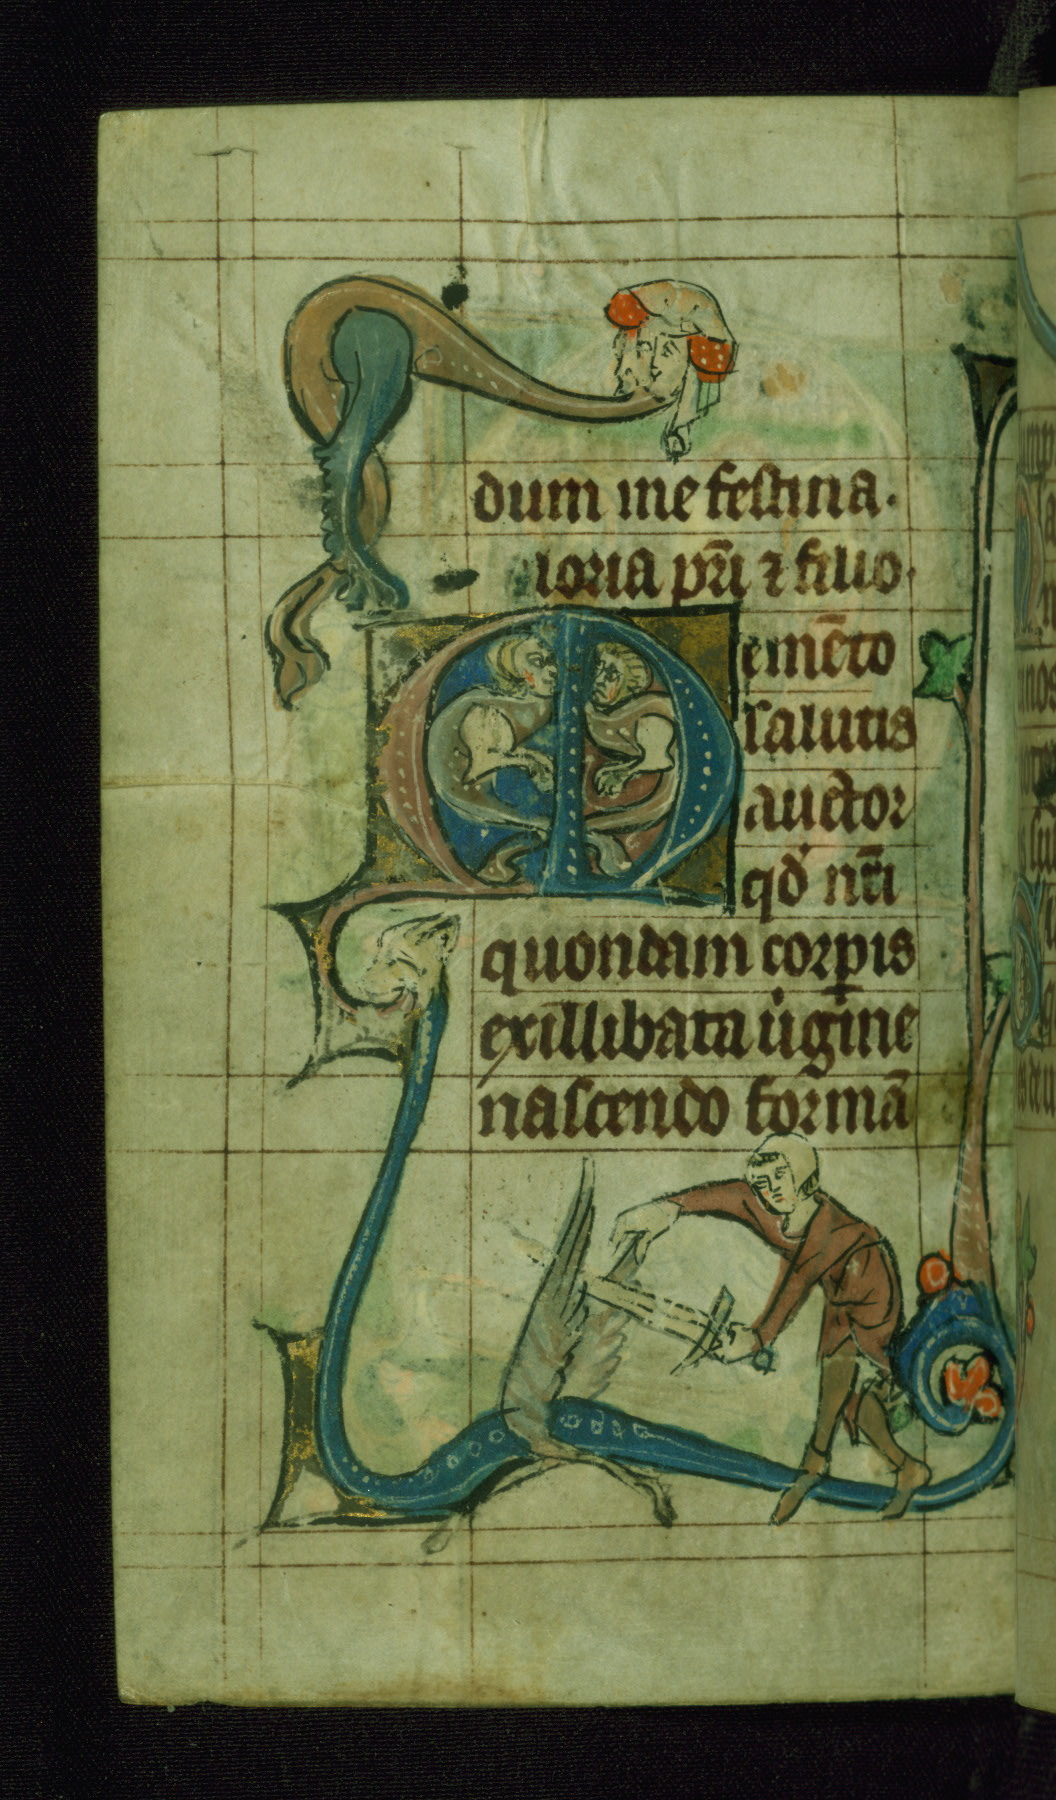 dum me festina.
loria pr̄i ⁊ filio.
emēto
salutis
auctor
qd̓ nr̄i
quondam corꝑis
exillibata u̓gine
nascendo formā